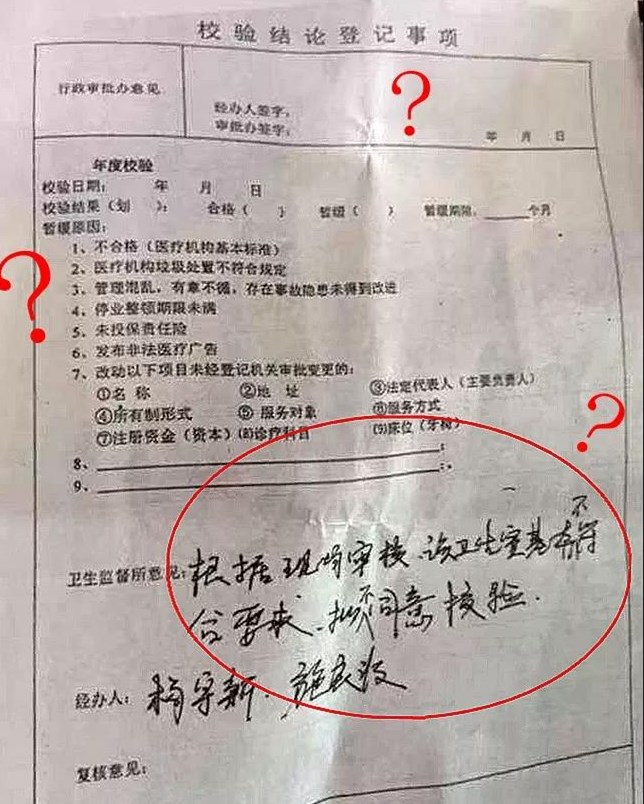 校验结论登记事项
行政审批办意见
?
经办人签字:
审批办签字:
年 月 日
年度校验
校验日期: 年 月 日
校验结果(划 ): 合格( ) 暂缓( ) 暂缓期限,____个月
暂缓原因:
?
1、不合格(医疗机构基本标准)
2、医疗机构垃圾处置不符合规定
3、管理混乱,有章不循,存在事故隐患未得到改进
4、停业整顿期限未满
5、未投保责任险
6、发布非法医疗广告
7、改动以下项目未经登记机关审批变更的:
①名 称 ②地 址 ③法定代表人(主要负责人)
④所有制形式 ⑤ 服务对象 ⑥服务方式
?
⑦注册资金(资本) ⑻诊疗科目 ⑼床位(牙椅)
8、____;
9、____;.
不
卫生监督所意见: 根据现场审核.该卫生室基本符
不
合要求.拟同意校验.
经办人: 杨宇新.
复核意见: